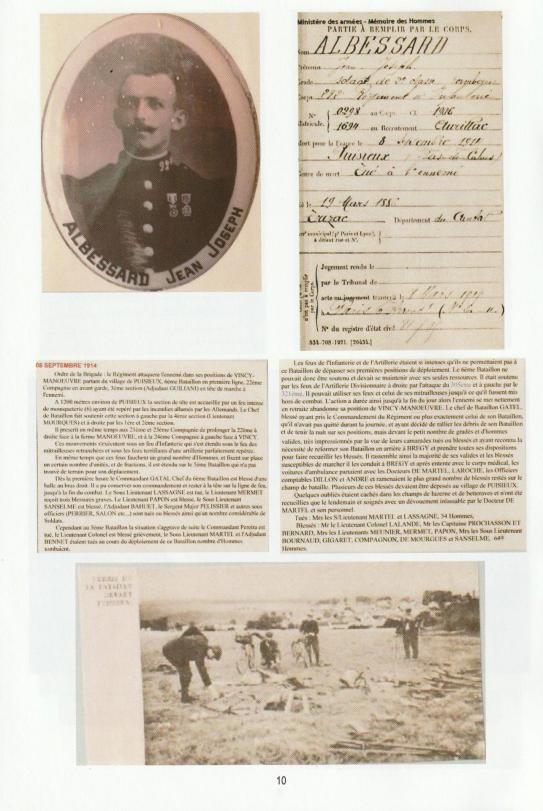 ALBESSARD JEAN JOSEPH
Ministère des armées - Mémoire des Hommes
PARTIE À REMPLIR PAR LE CORPS.
Nom ALBESSARD
Prénoms Jean Joseph
Grade soldat de 2e classe
N°
Matricule.
0298 au Corps. Cl. 1906
1694 au Recrutement Aurillac
Mort pour la France le 8
Genre de mort Tué à l'ennemi
19 Mars 188
Département du Cantal
Jugement rendu le
par le Tribunal de
acte ou jugement transcrit le
N° du registre d'état civil
534-708-1921. [26434.]
08 SEPTEMBRE 1914
Ordre de la Brigade : le Régiment attaquera l'ennemi dans ses positions de VINCY-
MANOEUVRE partant du village de PUISIEUX, 6ème Bataillon en première ligne, 22ème
Compagnie en avant garde, 3ème section (Adjudant GUILIANI) en tête de marche à
l'ennemi.
A 1200 mètres environ de PUISIEUX la section de tête est accueillie par un feu intense
de mousqueterie (6) ayant été repéré par les incendies allumés par les Allemands. Le Chef
de Bataillon fait soutenir cette section à gauche par la 4ème section (Lieutenant
MOURGUES) et à droite par les 1ère et 2ème section.
Il prescrit en même temps aux 21ème et 23ème Compagnie de prolonger la 22ème à
droite face à la ferme MANOEUVRE, et à la 24ème Compagnie à gauche face à VINCY.
Ces mouvements s'exécutent sous un feu d'Infanterie qui s'est étendu sous le feu des
mitrailleuses retranchées et sous les feux terrifiants d'une artillerie parfaitement repérée.
En même temps que ces feux fauchent un grand nombre d'Hommes, et fixent sur place
un certain nombre d'unités, et de fractions, il est étendu sur le 5ème Bataillon qui n'a pas
trouvé de terrain pour son déploiement.
Dès la première heure le Commandant GATAL, Chef du 6ème Bataillon est blessé d'une
balle au bras droit. Il a pu conserver son commandement et rester à la tête sur la ligne de feu,
jusqu'à la fin du combat. Le Sous Lieutenant LASSAGNE est tué, le Lieutenant MERMET
reçoit trois blessures graves. Le Lieutenant PAPON est blessé, le Sous Lieutenant
SANSELME est blessé, l'Adjudant BAHUET, le Sergent Major PELISSIER et autres sous
officiers (PERRIER, SALON etc...) sont tués ou blessés ainsi qu'un nombre considérable de
Soldats.
Cependant au 5ème Bataillon la situation s'aggrave de suite le Commandant Pereira est
tué, le Lieutenant Colonel est blessé grièvement, le Sous Lieutenant MARTEL et l'Adjudant
BENNET étaient tués au cours du déploiement de ce Bataillon nombre d'Hommes
tombaient.
Les feux de l'Infanterie et de l'Artillerie étaient si intenses qu'ils ne permettaient pas à
ce Bataillon de dépasser ses premières positions de déploiement. Le 6ème Bataillon ne
pouvait donc être soutenu et devait se maintenir avec ses seules ressources. Il était soutenu
par les feux de l'Artillerie Divisionnaire à droite par l'attaque du 305ème et à gauche par le
321ème. Il pouvait utiliser ses feux et celui de ses mitrailleuses jusqu'à ce qu'il fussent mis
hors de combat. L'action a durée ainsi jusqu'à la fin du jour alors l'ennemi se met nettement
en retraite abandonne sa position de VINCY-MANOEUVRE. Le chef de Bataillon GATEL,
blessé ayant pris le Commandement du Régiment ou plus exactement celui de son Bataillon,
qu'il n'avait pas quitté durant la journée, et ayant décidé de rallier les débris de son Bataillon
et de tenir la nuit sur ses positions, mais devant le petit nombre de gradés et d'hommes
valides, très impressionnés par la vue de leurs camarades tués ou blessés et ayant reconnu la
nécessité de reformer son Bataillon en arrière à BREGY et prendre toutes ses dispositions
pour faire recueillir les blessés. Il rassemble ainsi la majorité de ses valides et les blessés
susceptibles de marcher il les conduit à BREGY et après entente avec le corps médical, les
voitures d'ambulance partaient avec les Docteurs DE MARTEL, LAROCHE, les Officiers
comptables DILLON et ANDRÉ et ramenaient le plus grand nombre de blessés restés sur le
champ de bataille. Plusieurs de ces blessés devaient être déposés au village de PUISIEUX.
Quelques oubliés étaient cachés dans les champs de luzerne et de betteraves et n'ont été
recueillies que le lendemain et soignés avec un dévouement inlassable par le Docteur DE
MARTEL et son personnel.
Tués : Mrs les S/Lieutenant MARTEL et LASSAGNE, 54 Hommes,
Blessés : Mr le Lieutenant Colonel LALANDE, Mr les Capitaine PROCHASSON ET
BERNARD, Mrs les Lieutenants MEUNIER, MERMET, PAPON, Mrs les Sous Lieutenant
BOURNAUD, GIGARET, COMPAGNON, DE MOURGUES et SANSELME, 649
Hommes.
10